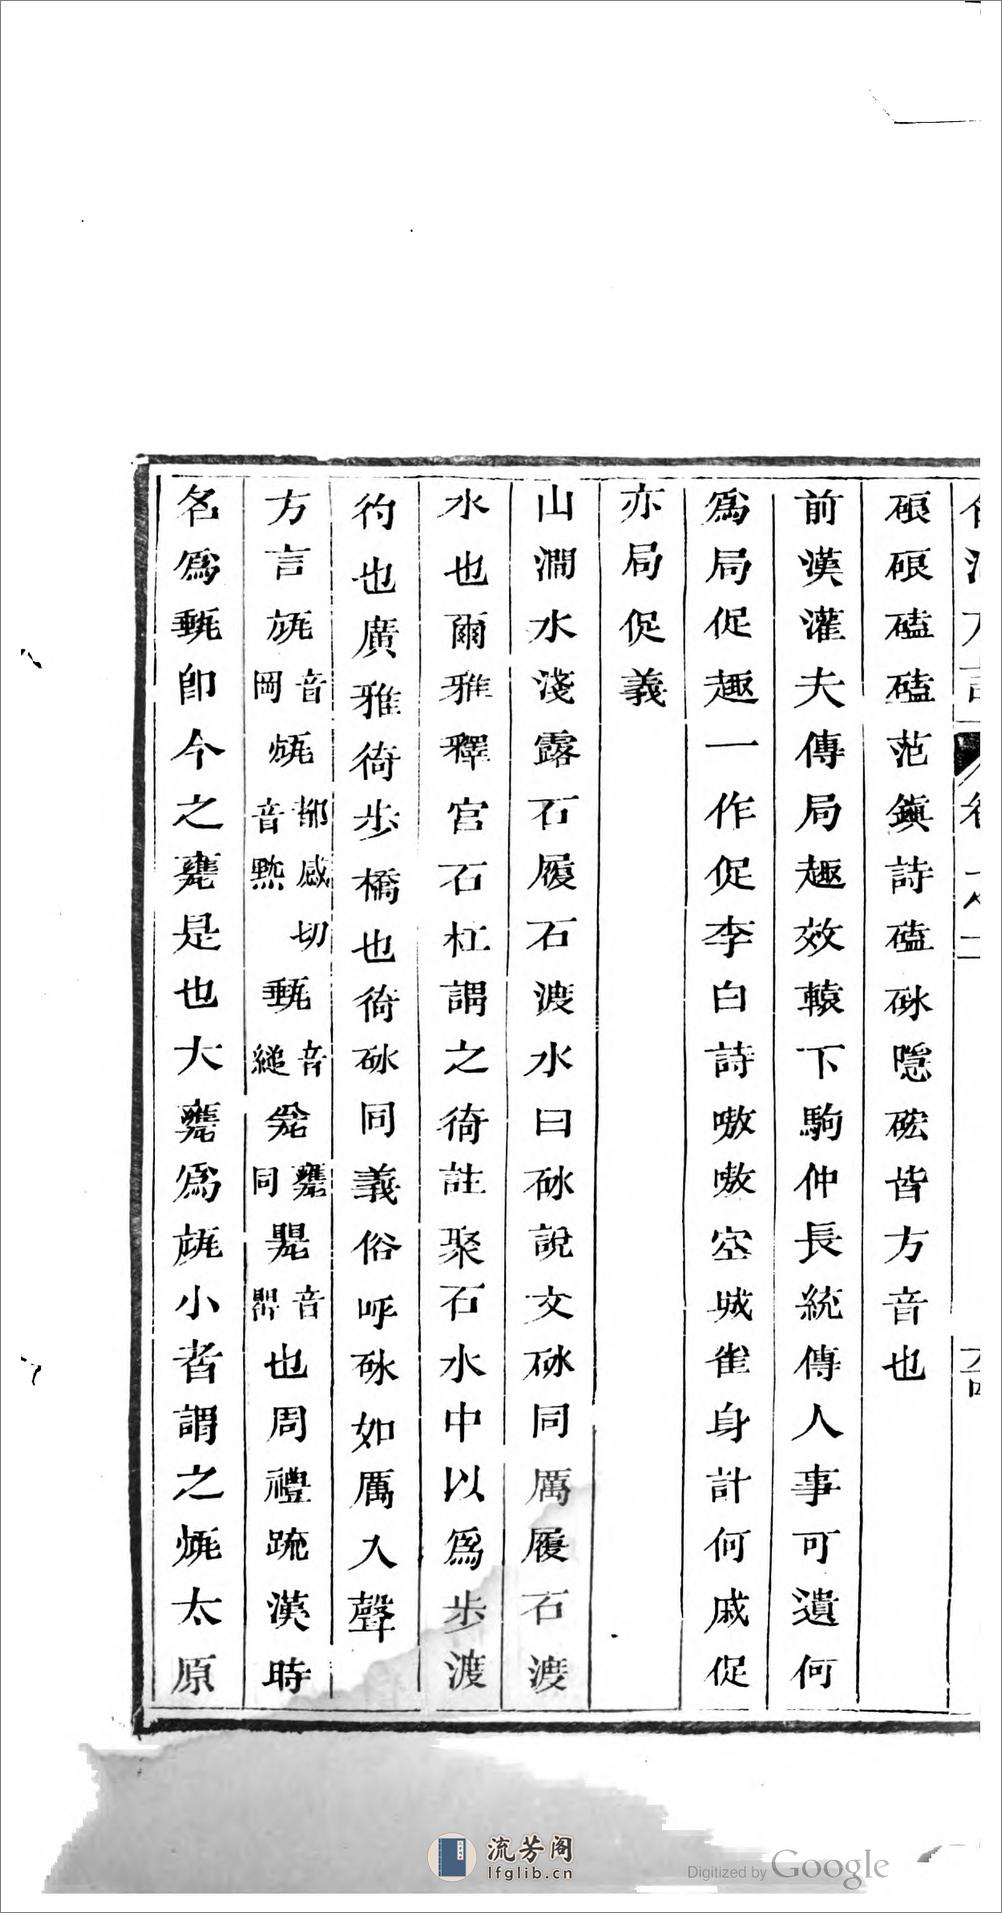 硠硠磕磕范鎭詩磕砯隱硡皆方音也
前漢灌夫傳局趣效轅下駒仲長統傳人事可遺何
爲局促趣一作促李白詩嗷嗷空城雀身計何戚促
亦局促義
山澗水淺露石履石渡水曰砯說文砯同厲履石渡
水也爾雅釋宮石杠謂之徛註聚石水中以爲步渡
彴也廣雅徛步橋也徛砯同義俗呼砯如厲入聲
方言瓬音岡㼶都感切音黕甀音縋瓮甕同甖音罌也周禮疏漢時
名爲甀卽今之甕是也大甕爲瓬小者謂之㼶太原
流芳阁
lfglib.cn
Digitized by Google